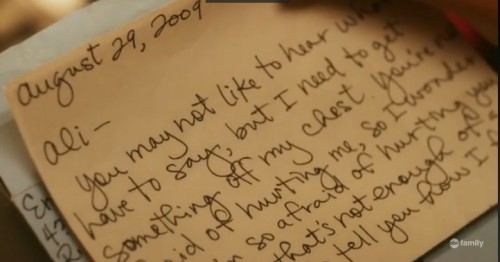 August 29, 2009
Ali-
You may not like to hear wha
have to say, but I need to get
something off my chest. You're ne
aid of hurting me, so I wonder
m so afraid of hurting you
that's not enough of a
tell you how I f
En
abc family